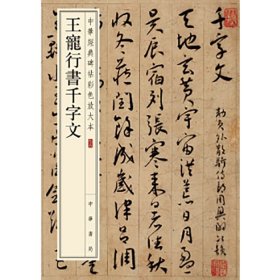 千字文
勑員外散騎侍郎周興嗣次韻
天地玄黃宇宙洪荒日月盈
昃辰宿列張寒來暑往秋
收冬藏閏餘成歲律呂調
中華經典碑帖彩色放大本
王寵行書千字文
中華書局